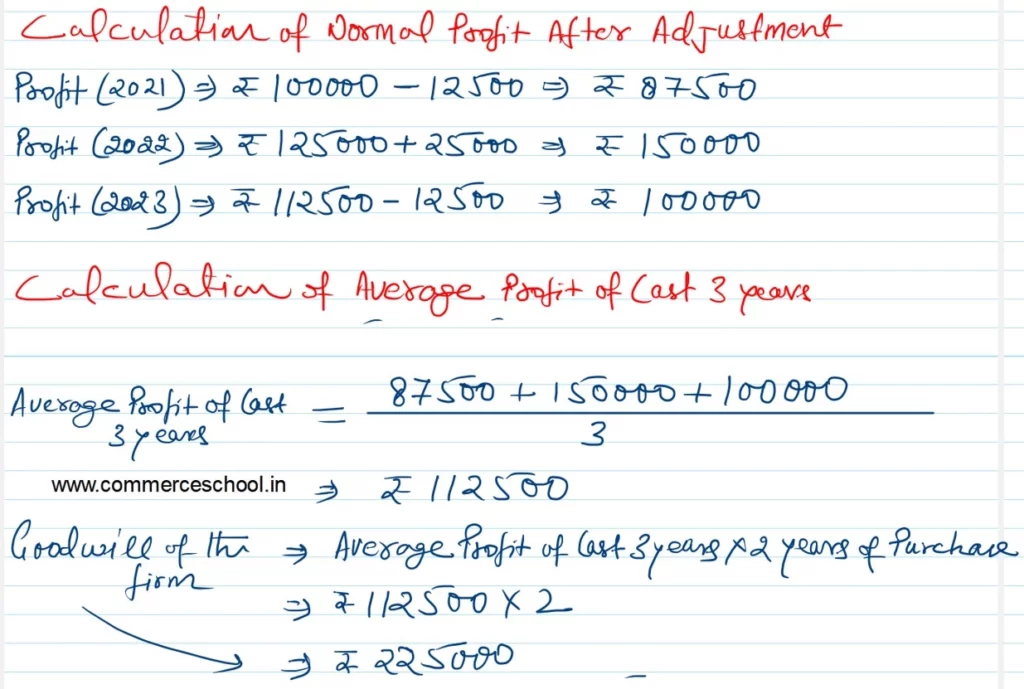 Calculation of Normal Profit After Adjustment
Profit (2021) ⇒ ₹ 100000 - 12500 ⇒ ₹ 87500
Profit (2022) ⇒ ₹ 125000 + 25000 ⇒ ₹ 150000
Profit (2023) ⇒ ₹ 112500 - 12500 ⇒ ₹ 100000
Calculation of Average Profit of Last 3 years
Average Profit of Last 3 years = 87500 + 150000 + 100000
3
www.commerceschool.in ⇒ ₹ 112500
Goodwill of the firm ⇒ Average Profit of Last 3 years × 2 years of Purchase
⇒ ₹ 112500 × 2
⇒ ₹ 225000